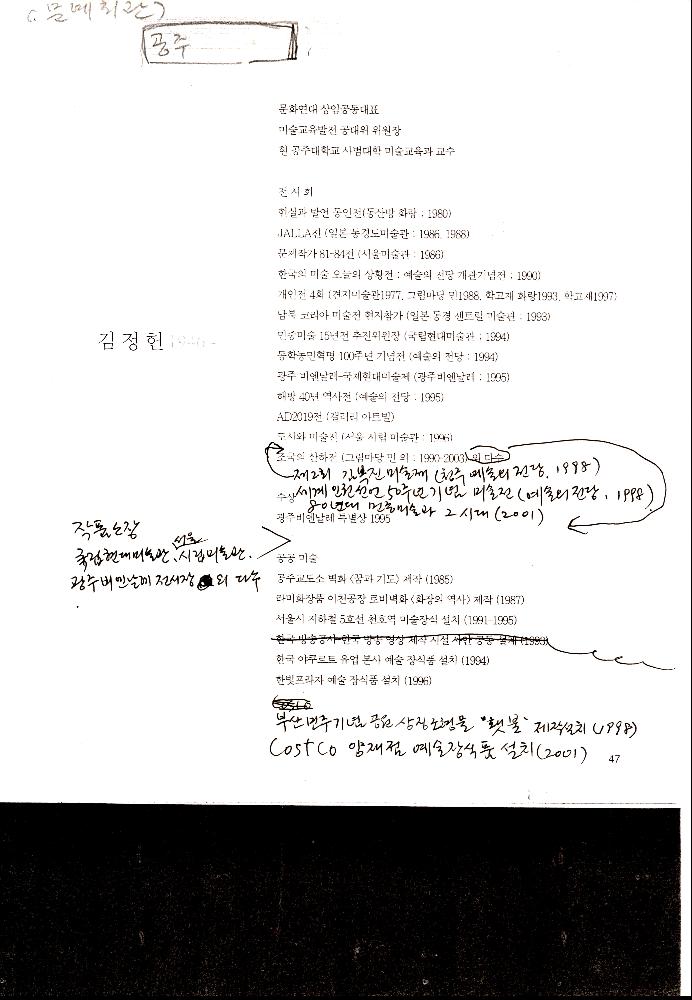 (문예회관)
공주
문화연대 상임공동대표
미술교육발전 공대위 위원장
현 공주대학교 사범대학 미술교육과 교수
전시회
현실과 발언 동인전(동산방 화랑 : 1980)
JALLA전 (일본 동경도미술관 : 1986, 1988)
문제작가 81-84전 (서울미술관 : 1986)
한국의 미술 오늘의 상황전 : 예술의 전당 개관기념전 : 1990)
개인전 4회 (견지미술관1977, 그림마당 민1988, 학고재 화랑1993, 학고재1997)
남북 코리아 미술전 현지참가 (일본 동경 센트럴 미술관 : 1993)
김정헌
민중미술 15년전 추진위원장 (국립현대미술관 : 1994)
동학농민혁명 100주년 기념전 (예술의 전당 : 1994)
광주 비엔날레-국제현대미술제 (광주비엔날레 : 1995)
해방 40년 역사전 (예술의 전당 : 1995)
AD2019전 (갤러리 아트빌)
도시와 미술전 (서울 시립 미술관 : 1996)
조국의 산하전 (그림마당 민 외 : 1990-2003) 외 다수
제2회 김복진미술제 (청주 예술의전당, 1998)
세계인권선언 50주년기념 미술전 (예술의전당, 1998)
수상
80년대 민중미술과 그 시대 (2001)
광주비엔날레 특별상 1995
작품소장
국립현대미술관, 서울시립미술관,
광주비엔날레 전시장 외 다수
공공 미술
공주교도소 벽화 <꿈과 기도> 제작 (1985)
라미화장품 이천공장 로비벽화 <화장의 역사> 제작 (1987)
서울시 지하철 5호선 천호역 미술장식 설치 (1991-1995)
한국 야쿠르트 유업 본사 예술 장식품 설치 (1994)
한빛프라자 예술 장식품 설치 (1996)
부산민주기념공원 상징조형물 "횃불" 제작설치 (1998)
CostCo 양재점 예술장식품 설치 (2001)
47